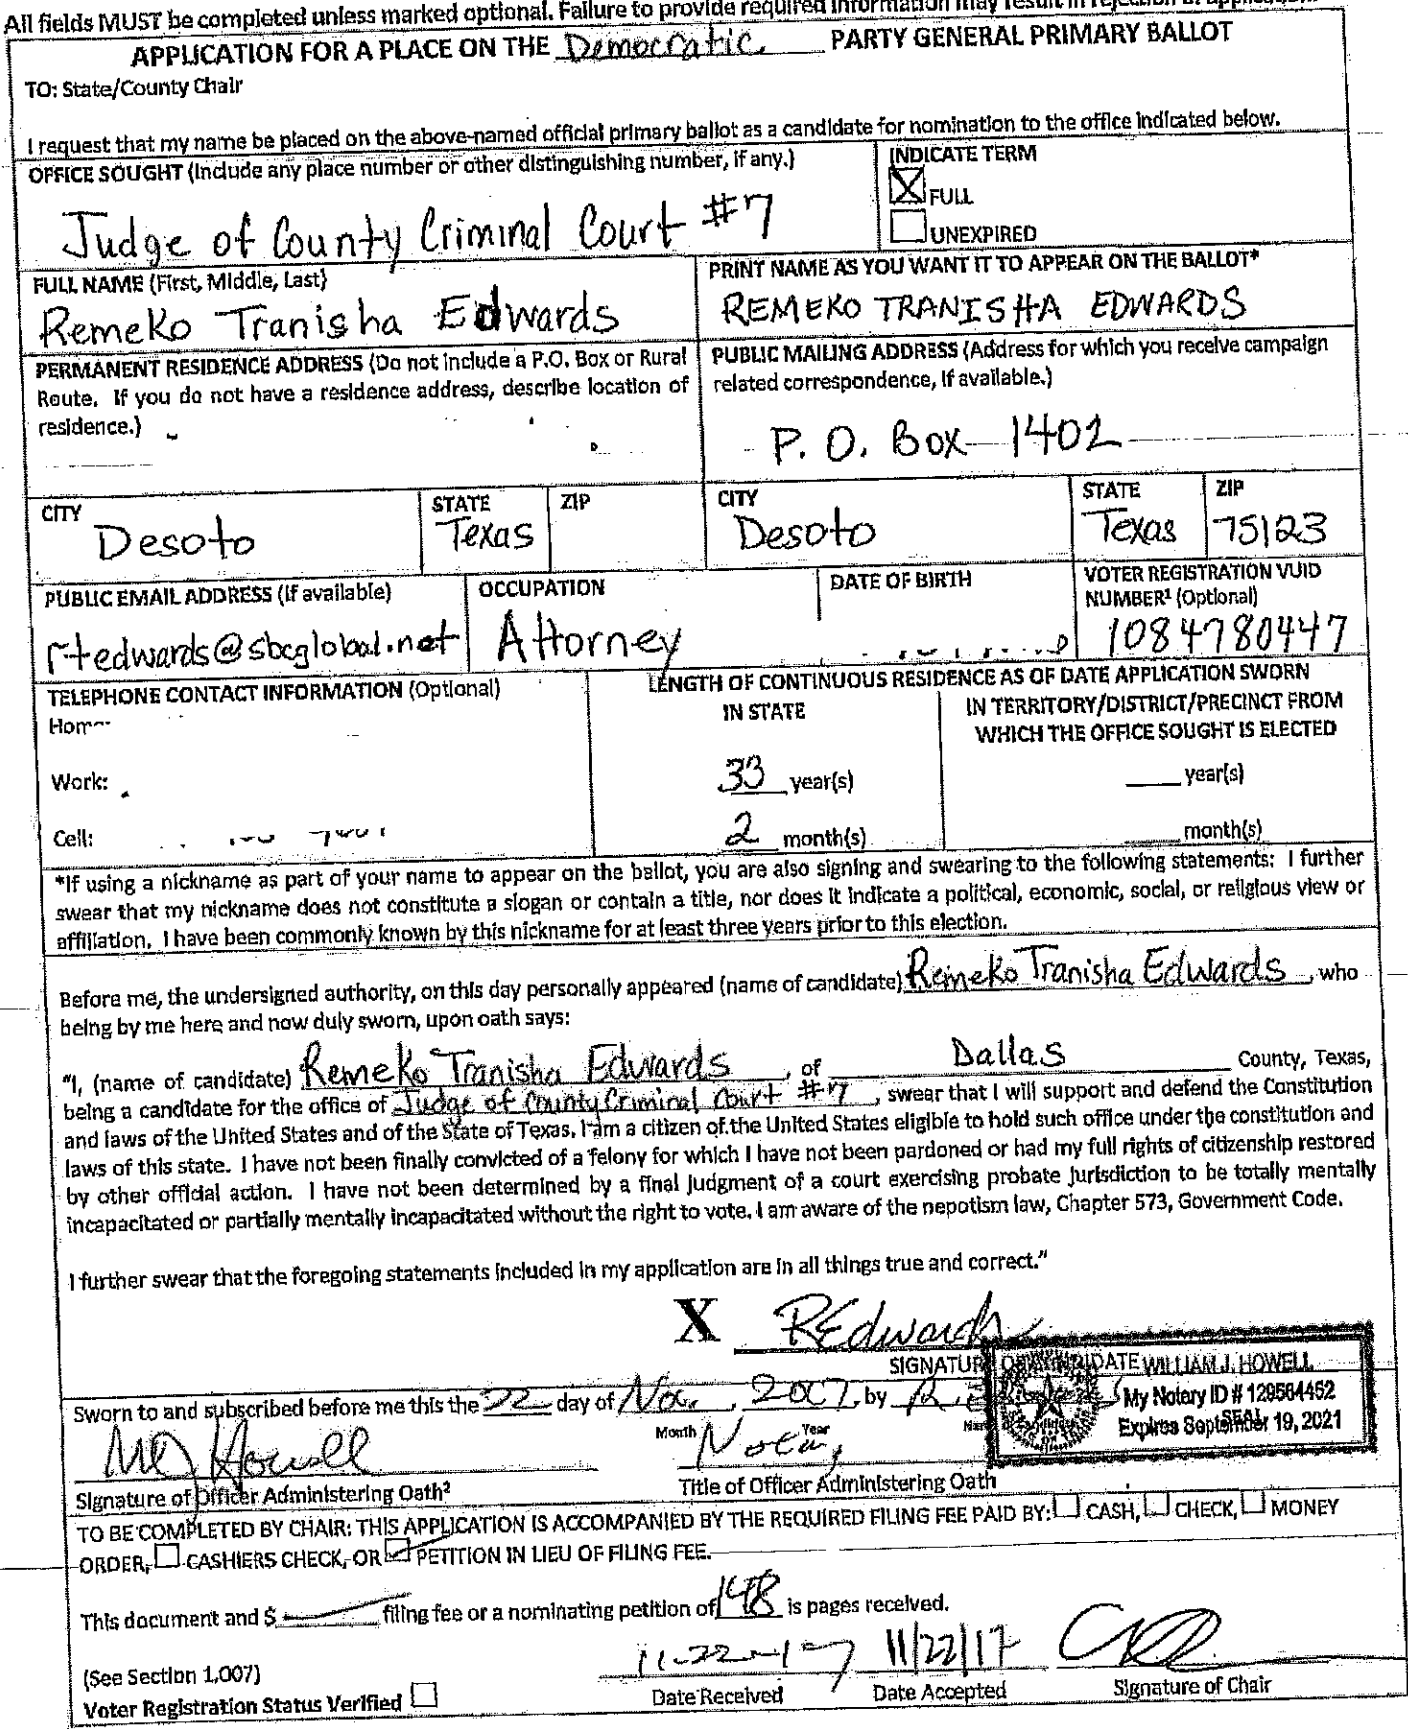 All fields MUST be completed unless marked optional. Failure to provide required information may result in rejection of application.
APPLICATION FOR A PLACE ON THE Democratic PARTY GENERAL PRIMARY BALLOT
TO: State/County Chair
I request that my name be placed on the above-named official primary ballot as a candidate for nomination to the office indicated below.
OFFICE SOUGHT (Include any place number or other distinguishing number, if any.)
Judge of County Criminal Court #7
INDICATE TERM
X FULL
UNEXPIRED
FULL NAME (First, Middle, Last)
Remeko Tranisha Edwards
PRINT NAME AS YOU WANT IT TO APPEAR ON THE BALLOT*
REMEKO TRANISHA EDWARDS
PERMANENT RESIDENCE ADDRESS (Do not include a P.O. Box or Rural
Route. If you do not have a residence address, describe location of
residence.)
PUBLIC MAILING ADDRESS (Address for which you receive campaign
related correspondence, if available.)
P. O. Box 1402
CITY
Desoto
STATE
Texas
ZIP
CITY
Desoto
STATE
Texas
ZIP
75123
PUBLIC EMAIL ADDRESS (If available)
rtedwards@sbcglobal.net
OCCUPATION
Attorney
DATE OF BIRTH
VOTER REGISTRATION VUID
NUMBER¹ (Optional)
1084780447
TELEPHONE CONTACT INFORMATION (Optional)
Home
Work:
Cell:
LENGTH OF CONTINUOUS RESIDENCE AS OF DATE APPLICATION SWORN
IN STATE
33 year(s)
2 month(s)
IN TERRITORY/DISTRICT/PRECINCT FROM
WHICH THE OFFICE SOUGHT IS ELECTED
year(s)
month(s)
*If using a nickname as part of your name to appear on the ballot, you are also signing and swearing to the following statements: I further
swear that my nickname does not constitute a slogan or contain a title, nor does it indicate a political, economic, social, or religious view or
affiliation. I have been commonly known by this nickname for at least three years prior to this election.
Before me, the undersigned authority, on this day personally appeared (name of candidate) Remeko Tranisha Edwards, who
being by me here and now duly sworn, upon oath says:
"I, (name of candidate) Remeko Tranisha Edwards, of Dallas County, Texas,
being a candidate for the office of Judge of County Criminal Court #7, swear that I will support and defend the Constitution
and laws of the United States and of the State of Texas. I am a citizen of the United States eligible to hold such office under the constitution and
laws of this state. I have not been finally convicted of a felony for which I have not been pardoned or had my full rights of citizenship restored
by other official action. I have not been determined by a final judgment of a court exercising probate jurisdiction to be totally mentally
incapacitated or partially mentally incapacitated without the right to vote. I am aware of the nepotism law, Chapter 573, Government Code.
I further swear that the foregoing statements included in my application are in all things true and correct."
X REdwards
SIGNATURE OF CANDIDATE
WILLIAM J. HOWELL
My Notary ID # 129564452
Expires September 19, 2021
SEAL
Sworn to and subscribed before me this the 22 day of Nov., 2007, by
Month
Year
WJ Howell
Notary
Signature of Officer Administering Oath²
Title of Officer Administering Oath
TO BE COMPLETED BY CHAIR: THIS APPLICATION IS ACCOMPANIED BY THE REQUIRED FILING FEE PAID BY: CASH, CHECK, MONEY
ORDER, CASHIERS CHECK, OR PETITION IN LIEU OF FILING FEE.
This document and $ filing fee or a nominating petition of 148 is pages received.
11-22-17 11/22/17
(See Section 1.007)
Voter Registration Status Verified
Date Received
Date Accepted
Signature of Chair